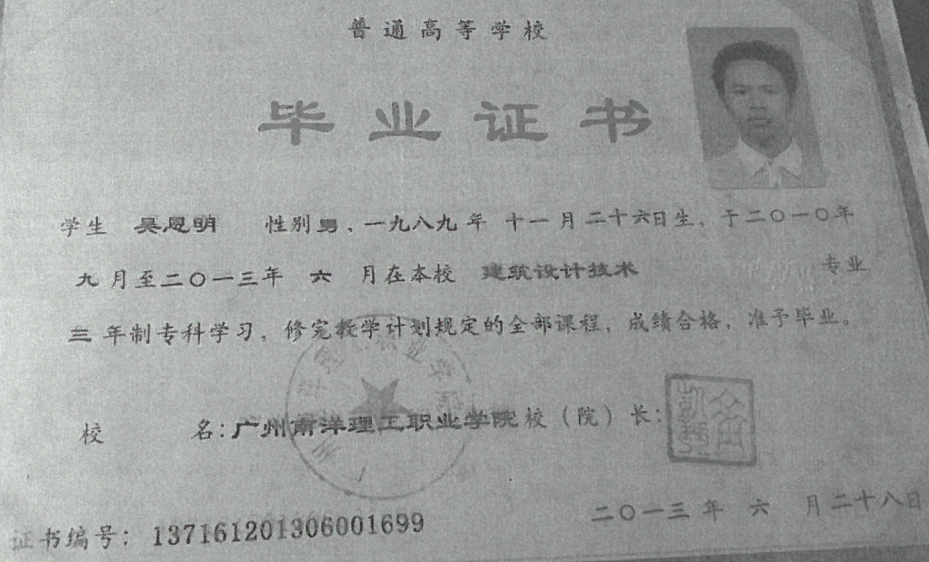 普通高等学校
毕业证书
学生 吴恩明 性别男、一九八九年 十一月二十六日生，于二〇一〇年
九月至二〇一三年 六 月在本校 建筑设计技术 专业
三年制专科学习，修完教学计划规定的全部课程，成绩合格，准予毕业。
校 名：广州南洋理工职业学院校（院）长：
二〇一三年 六 月二十八日
证书编号：137161201306001699